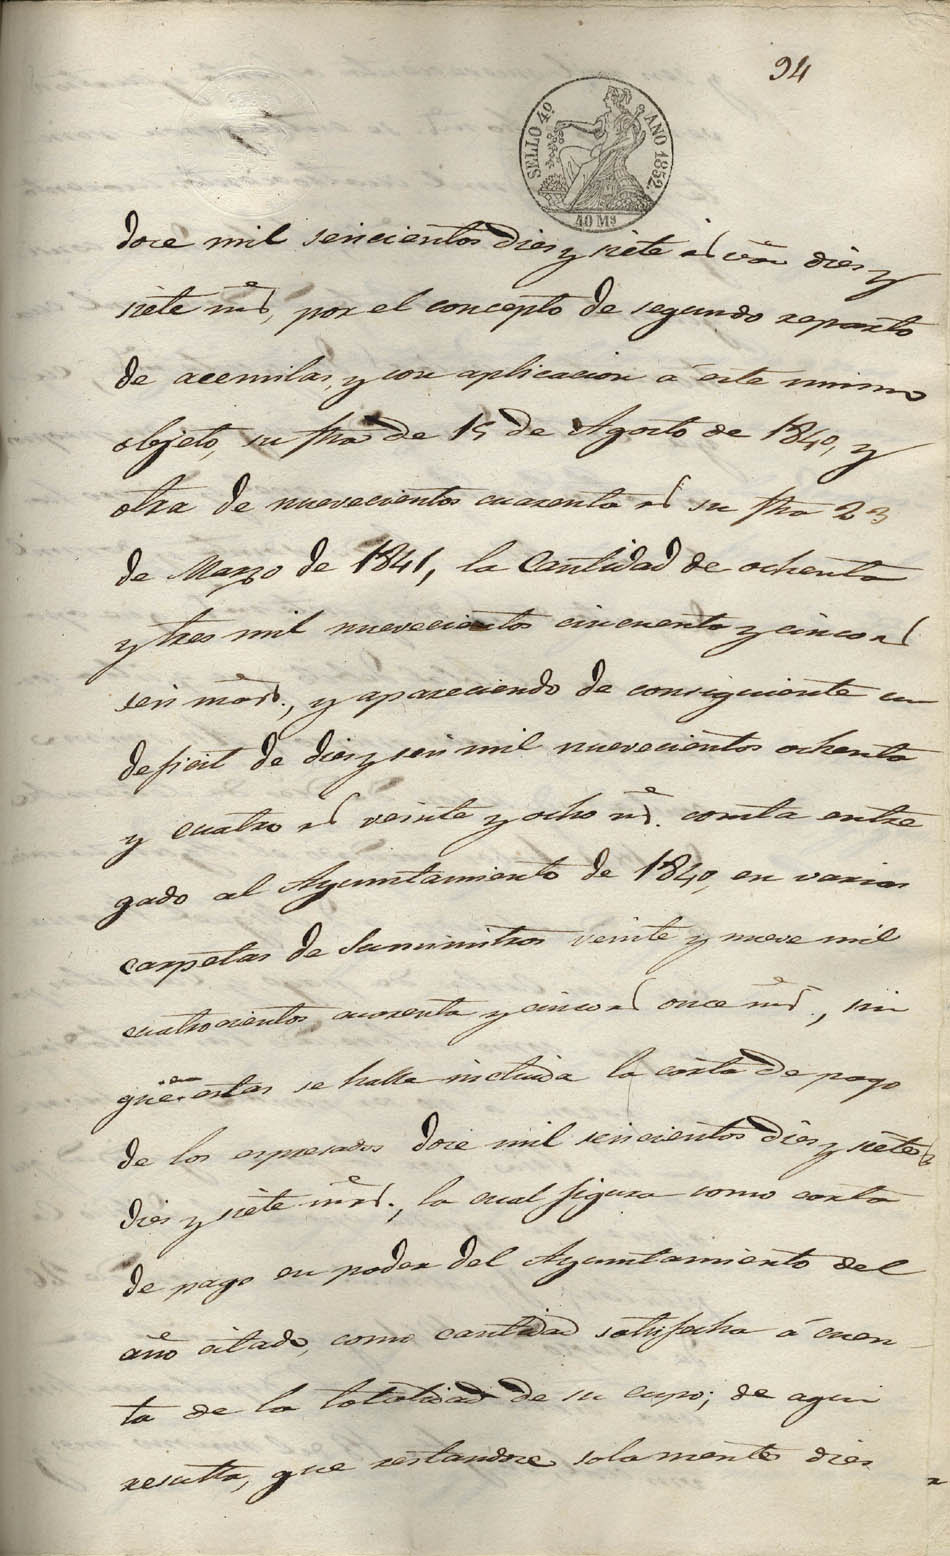 94
SELLO 4º AÑO 1852.
40 Ms
doce mil seiscientos dies y siete rs von dies y
siete mrs, por el concepto de segundo reparto
de acemilas, y con aplicacion á este mismo
objeto, su fha de 15 de Agosto de 1840, y
otra de nuevecientos cuarenta rs su fha 23
de Marzo de 1841, la Cantidad de ochenta
y tres mil nuevecientos cincuenta y cinco rs
seis mrs., y apareciendo de consiguiente un
deficit de dies y seis mil nuevecientos ochenta
y cuatro rs veinte y ocho ms. consta entre
gado al Ayuntamiento de 1840, en varias
carpetas de Suministros veinte y nueve mil
cuatrocientos cuarenta y cinco rs once mrs., sin
que en estas se halla incluida la carta de pago
de los espresados doce mil seiscientos dies y siete rs
dies y siete mrs., la cual figura como carta
de pago en poder del Ayuntamiento del
año citado, como cantidad satisfecha á cuen-
ta de la totalidad de su cupo; de aqui
resulta, que restandose solamente dies